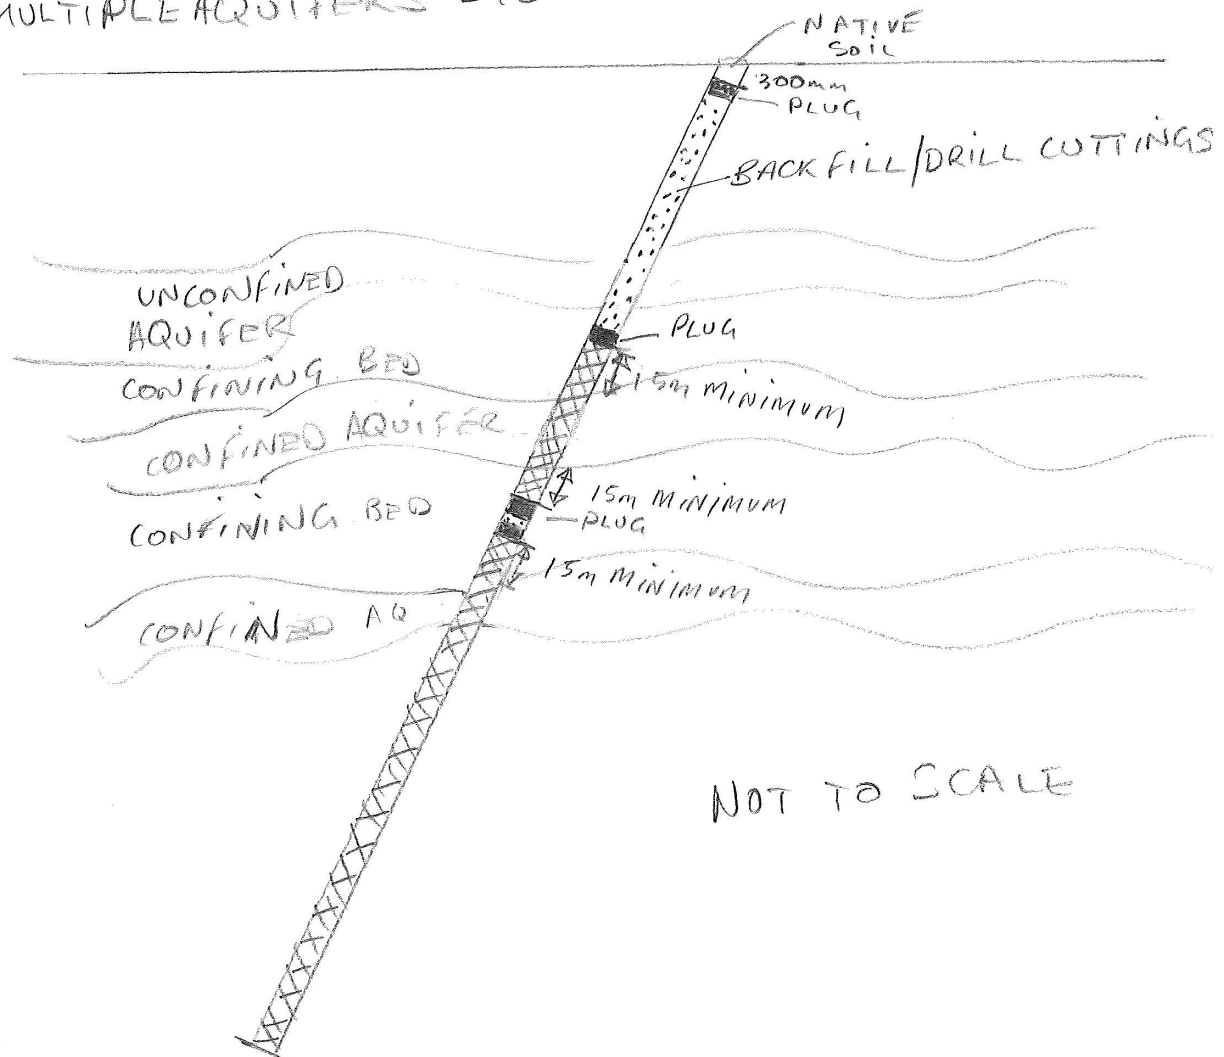 MULTIPLE AQUIFERS
NATIVE
SOIL
300mm
PLUG
BACKFILL/DRILL CUTTINGS
UNCONFINED
AQUIFER
PLUG
CONFINING BED
15m MINIMUM
CONFINED AQUIFER
15m MINIMUM
CONFINING BED
PLUG
15m MINIMUM
CONFINED AQ
NOT TO SCALE